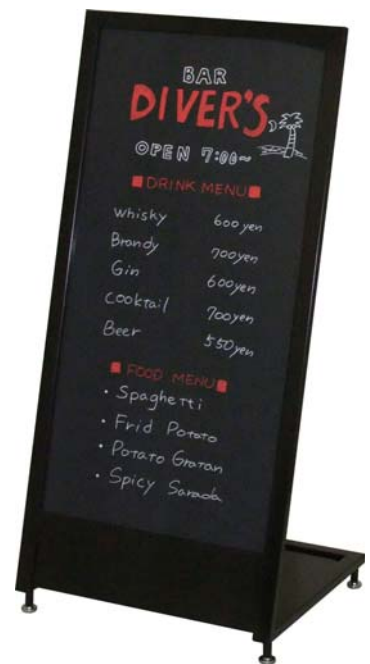 BAR
DIVER'S
OPEN 7:00~
■DRINK MENU■
Whisky 600yen
Brandy 700yen
Gin 600yen
Cooktail 700yen
Beer 550yen
■FOOD MENU■
・Spaghetti
・Frid Potato
・Potato Gratan
・Spicy Sarada